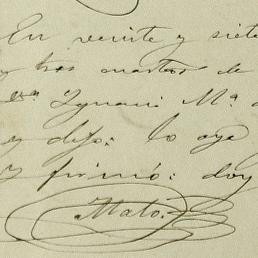 En veinte y siete
y tres cuartos de
Ignacio Mª
y dijo: lo oye
y firmó: doy
Mató.